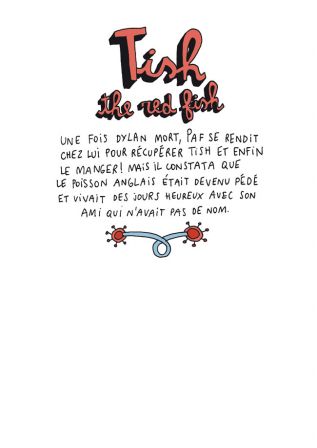 Tish
the red fish
UNE FOIS DYLAN MORT, PAF SE RENDIT
CHEZ LUI POUR RÉCUPÉRER TISH ET ENFIN
LE MANGER! MAIS IL CONSTATA QUE
LE POISSON ANGLAIS ÉTAIT DEVENU PÉDÉ
ET VIVAIT DES JOURS HEUREUX AVEC SON
AMI QUI N'AVAIT PAS DE NOM.